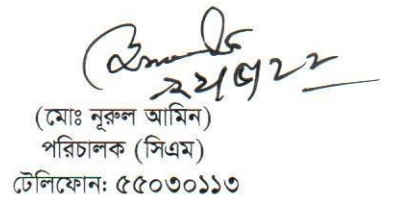 (মোঃ নূরুল আমিন)
পরিচালক (সিএম)
টেলিফোন: ৫৫০৩০১১৩